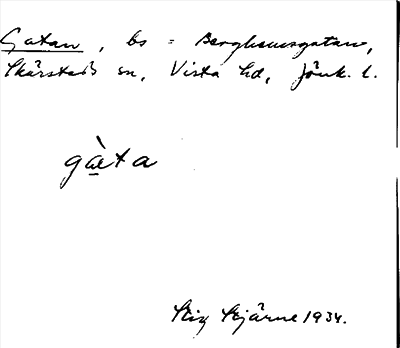 Gatan, bs = Berghemsgatan,
Skärstads sn, Vista hd, Jönk. l.
gàeta
Stig Stjärne 1934.